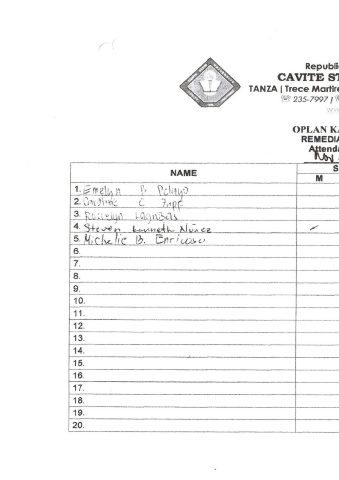 Republi
CAVITE ST
TANZA | Trece Martire
235-7997 |
OPLAN KA
REMEDIA
Attenda
Nov
NAME
S
M
1. Emelyn P. Pelayo
2. C.
3. Roselyn
4. Steven Kenneth Nuñez
5. Michelle B. Enricoso
6.
7.
8.
9.
10.
11.
12.
13.
14.
15.
16.
17.
18.
19.
20.